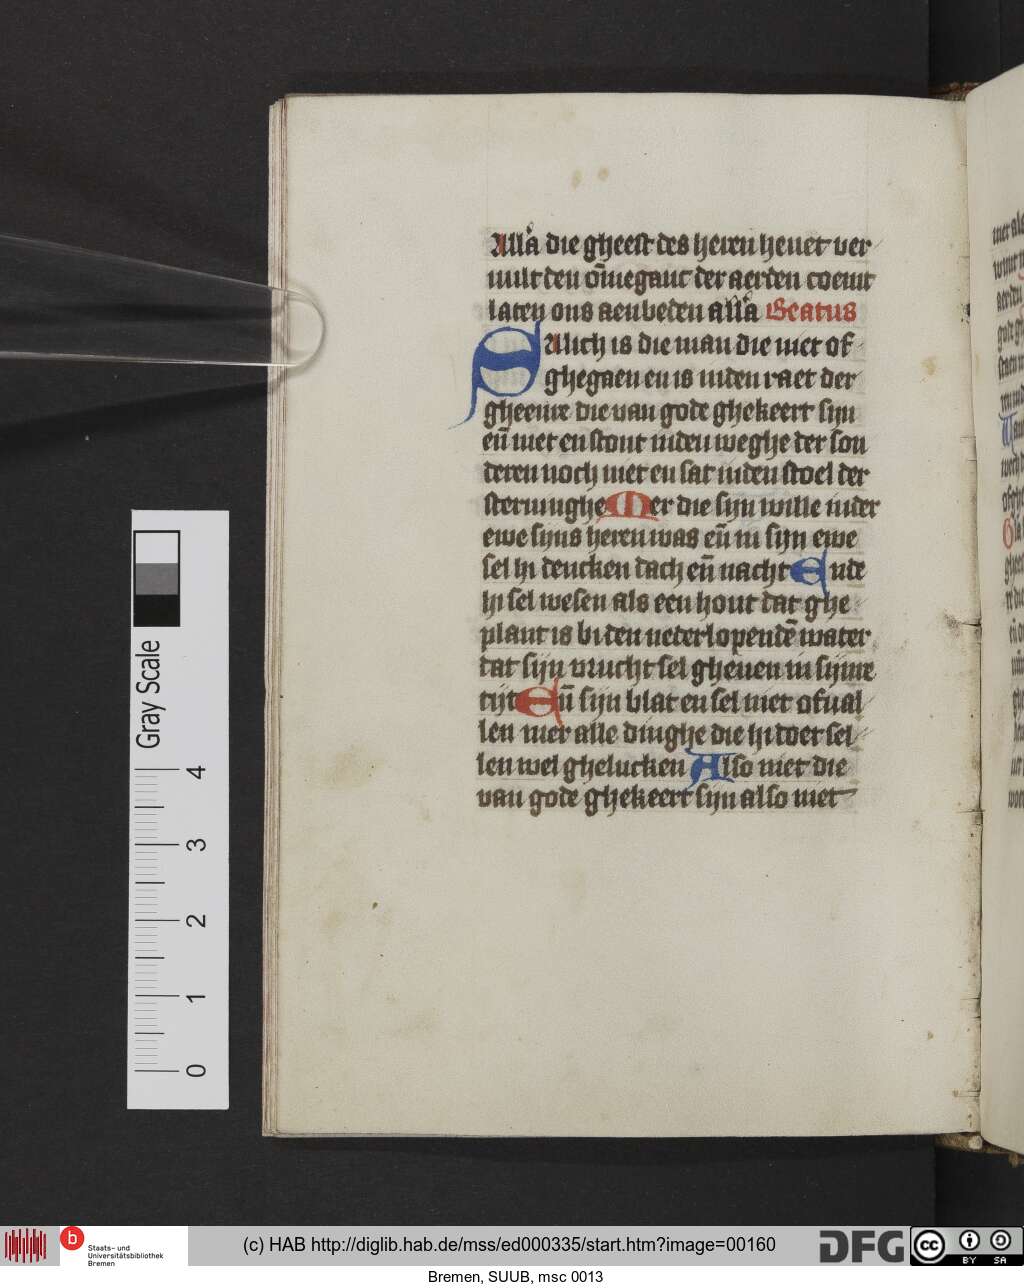 Alla die gheest des heren heuet ver
uult den o̅meganc der aerden coemt
laten ons aenbeden alla Beatus
SAlich is die man die niet of
ghegaen en is inden raet der
gheenre die van gode ghekeert sijn
en̅ niet en stont inden weghe der son
deren noch niet en sat inden stoel der
steruinghe Mer die sijn wille inder
ewe sijns heren was en̅ in sijn ewe
sel hi dencken dach en̅ nacht Ende
hi sel wesen als een hout dat ghe
plant is biden nederlopende̅ water
dat sijn vrucht sel gheuen in sijnre
tijt En̅ sijn blat en sel niet ofual
len mer alle dinghe die hi doet sel
len wel ghelucken Also niet die
van gode ghekeert sijn also niet
Gray Scale
4
3
2
1
0
b
Staats- und
Universitätsbibliothek
Bremen
(c) HAB http://diglib.hab.de/mss/ed000335/start.htm?image=00160
DFG
cc
BY SA
Bremen, SUUB, msc 0013